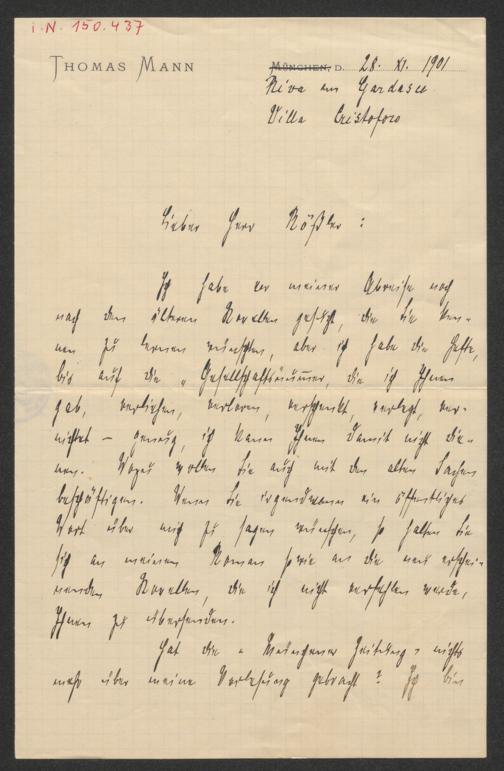 i.N. 150.437
THOMAS MANN
MÜNCHEN, D. 28. XI. 1901
Riva am Gardasee
Villa Cristoforo
Lieber Herr Rößler:
Ich habe vor meiner Abreise noch
nach den älteren Novellen gesucht, die Sie ken-
nen zu lernen wünschten, aber ich habe die Hefte,
bis auf die „Gesellschaftsnummer, die ich Ihnen
gab, verliehen, verloren, verschenkt, verlegt, ver-
nichtet – genug, ich kann Ihnen damit nicht die-
nen. Wozu wollen Sie auch mit den alten Sachen
beschäftigen. Wenn Sie irgendwann ein öffentliches
Wort über mich zu sagen wünschen, so halten Sie
sich an meinen Roman sowie an die neu erschei-
nenden Novellen, die ich nicht verfehlen werde,
Ihnen zu übersenden.
Hat die „Münchener Zeitung" nichts
mehr über meine Vorlesung gebracht? Ich bin